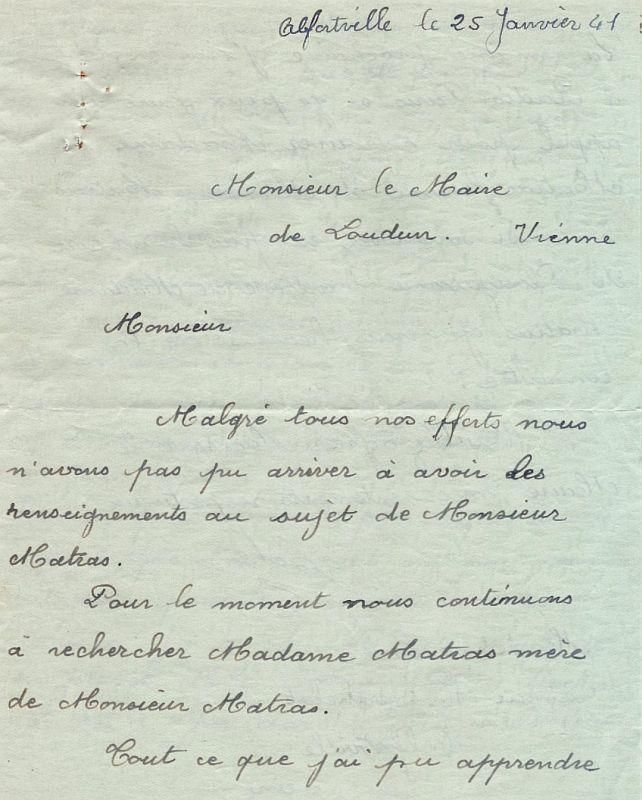 Alfortville le 25 Janvier 41
Monsieur le Maire
de Loudun. Viénne
Monsieur
Malgré tous nos efforts nous
n'avons pas pu arriver à avoir des
renseignements au sujet de Monsieur
Matras.
Pour le moment nous continuons
à rechercher Madame Matras mère
de Monsieur Matras.
Tout ce que j'ai pu apprendre